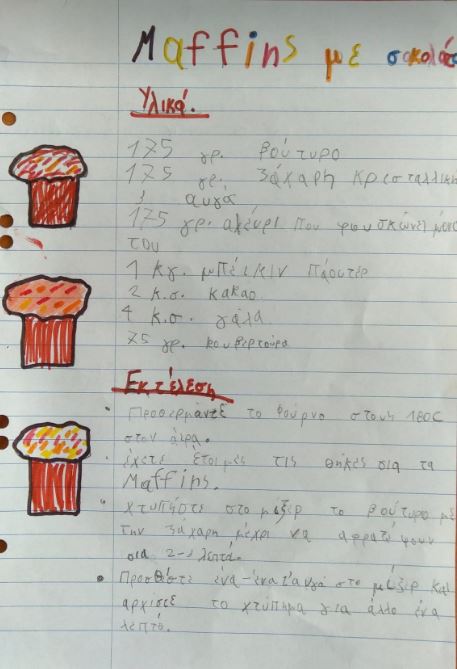 Maffins με σοκολάτ
Υλικά.
175 γρ. βούτυρο
175 γρ. ζάχαρη κρυσταλλικη
3 αυγά
175 γρ. αλεύρι που φουσκώνει μόνο
του
1 κγ. μπέικιν πάουτερ
2 κ.σ. κακαο
4 κ.σ. γάλα
75 γρ. κουβερτούρα
Εκτέλεση
Προθερμάντε το φούρνο στους 180C
στον αέρα.
έχετε έτοιμες τις θήκες για τα
Maffins.
χτυπήστε στο μίξερ το βούτυρο με
την ζάχαρη μέχρι να αφρατέψουν
για 2-3 λεπτά.
Προσθέστε ένα-ένα τ'αυγά στο μίξερ και
αρχισε το χτύπημα για άλλο ένα
λεπτό.